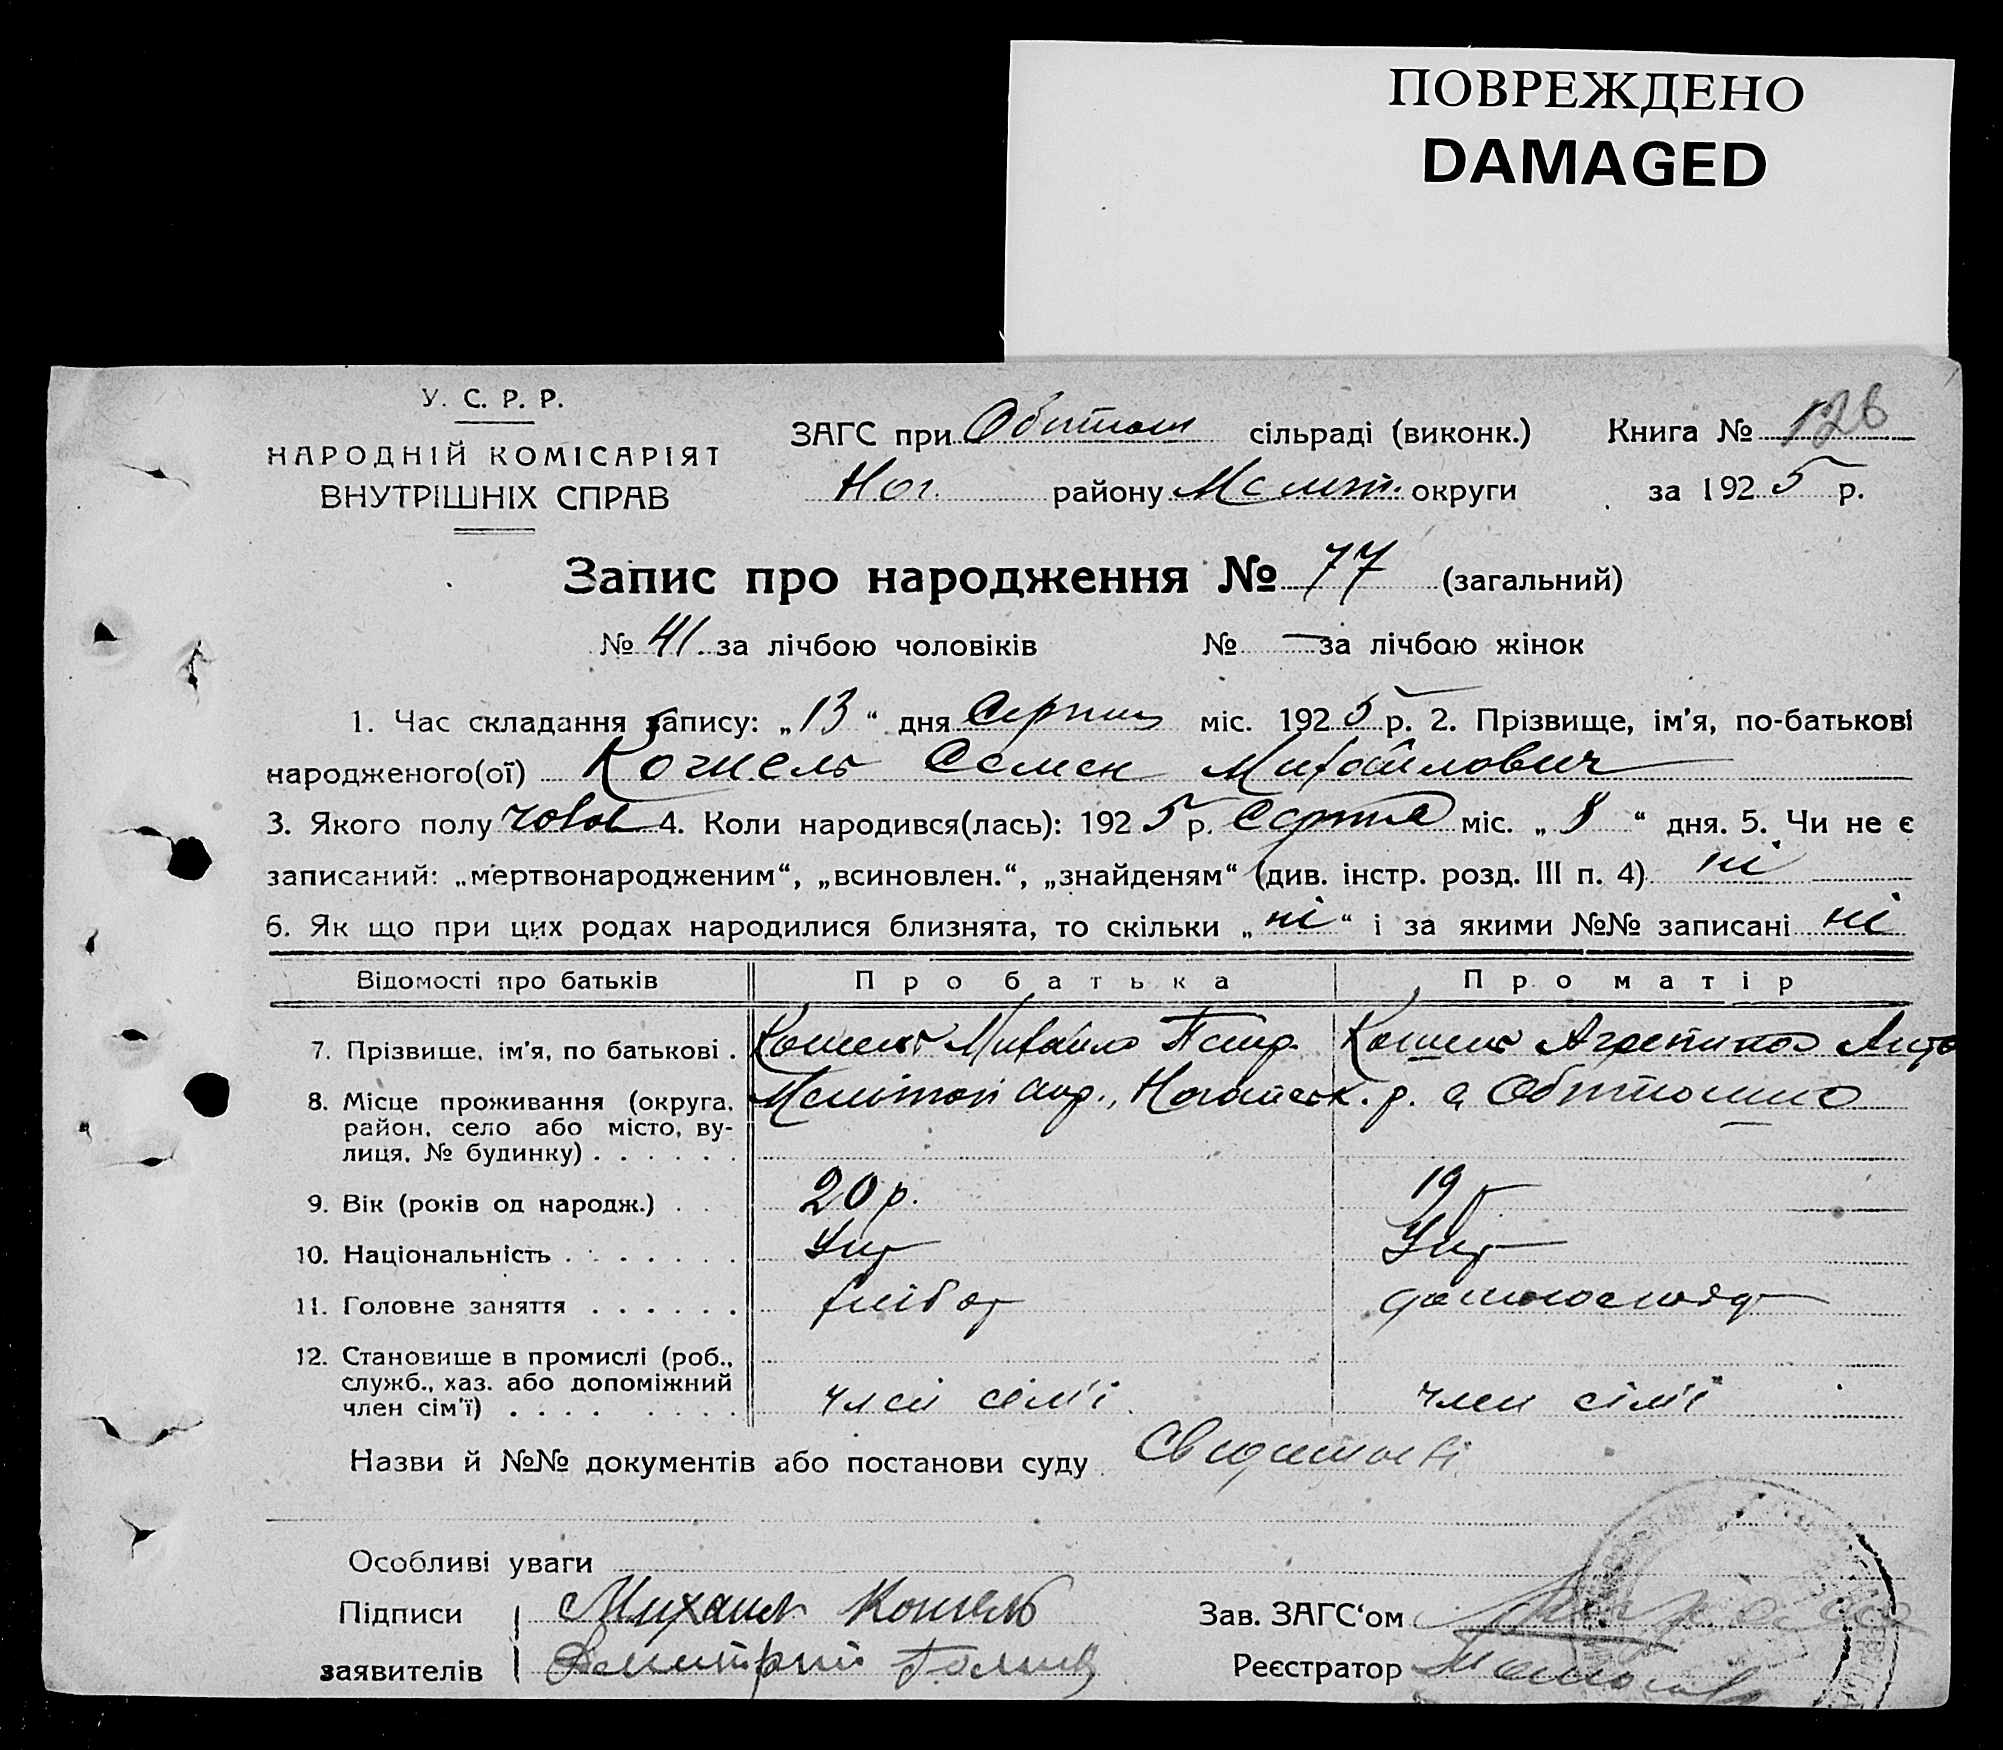 ПОВРЕЖДЕНО
DAMAGED
У. С. Р. Р.
НАРОДНІЙ КОМІСАРІЯТ
ВНУТРІШНІХ СПРАВ
ЗАГС при сільраді (виконк.) Книга № 126
Ног. району Меліт. округи за 1925 р.
Запис про народження № 77 (загальний)
№ 41. за лічбою чоловіків № — за лічбою жінок
1. Час складання запису: „13“ дня Серпня міс. 1925 р. 2. Прізвище, ім'я, по-батькові
народженого(ої) Семен Михайлович
3. Якого полу чолов 4. Коли народився(лась): 1925 р. Серпня міс. „8“ дня. 5. Чи не є
записаний: „мертвонародженим“, „всиновлен.“, „знайденям“ (див. інстр. розд. III п. 4) ні
6. Як що при цих родах народилися близнята, то скільки „ні“ і за якими №№ записані ні
Відомості про батьків Про батька Про матір
7. Прізвище, ім'я, по батькові . Кошель Михайло Кошель
8. Місце проживання (округа, район, село або місто, вулиця, № будинку) . . . . . . Мелітоп окр., Ногайськ. р. с. Обиточно
9. Вік (років од народж.) . . . 20 р. 19 р
10. Національність . . . . . . . Укр Укр
11. Головне заняття . . . . . . хлібор домогосподр
12. Становище в промислі (роб., служб., хаз. або допоміжний член сім'ї) . . . . . . . . член сем'ї член сім'ї
Назви й №№ документів або постанови суду
Особливі уваги
Підписи Михаил Кошель Зав. ЗАГС'ом
заявителів Дмитрий Реєстратор